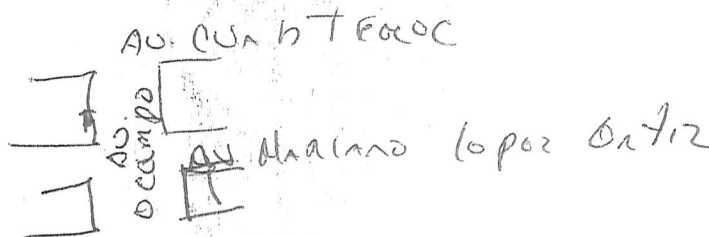 AV. CUAhTEMOC
AV.
OCAMPO
AV. MARIANO LOPEZ ORTIZ